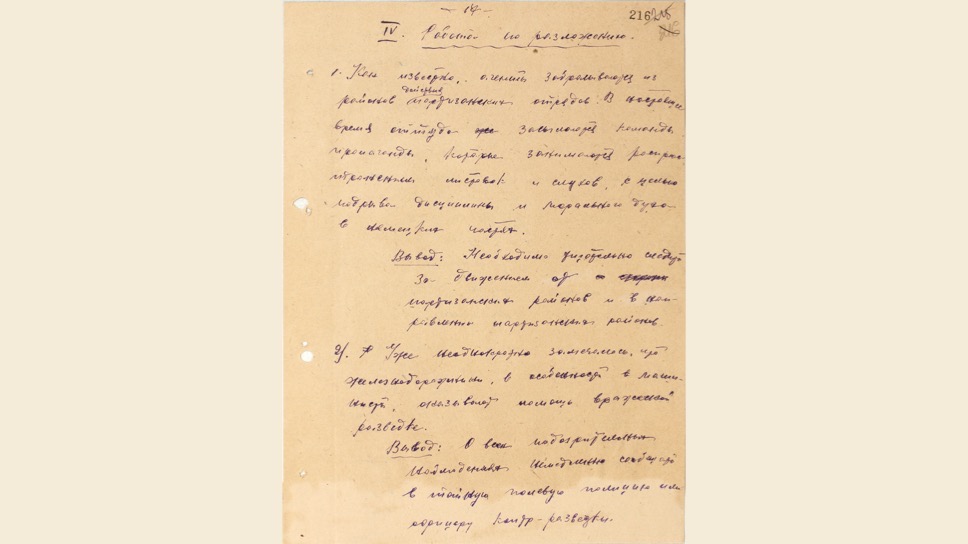 - 14 -
216
IV. Работа по разложению.
1. Как известно, агенты забрасываются из
районов действия партизанских отрядов. В настоящее
время оттуда же засылаются команды
пропаганды, которые занимаются распро-
странением листовок и слухов, с целью
подрыва дисциплины и морального духа
в немецких частях.
Вывод: Необходимо тщательно следить
за движением от
партизанских районов и в нап-
равлении партизанских районов.
2). Уже неоднократно замечалось, что
железнодорожники, в особенности маши-
нисты, оказывают помощь вражеской
разведке.
Вывод: О всех подозрительных
наблюдениях немедленно сообщать
в тайную полевую полицию или
офицеру контр-разведки.